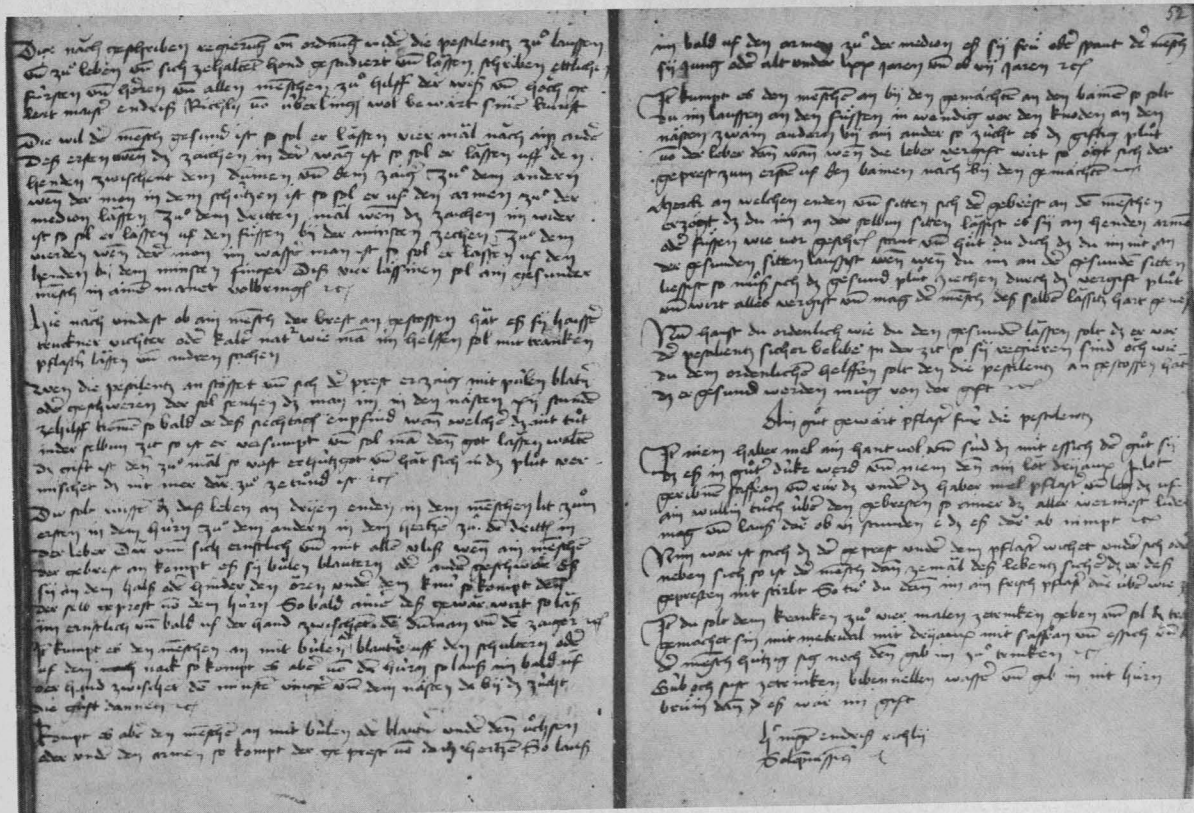 Dise nach geschriben regierung vn̄ ordnung wider die pestilentz zuͦ laussen
vn̄ zuͦ leben vn̄ sich zehalten hond gestudiert vn̄ lassen schriben ettliche
fürsten vn̄ heren vn̄ allen menschen zuͦ hilff der wiß vn̄ hoch ge
lert maister endriß Richlin vō überlingē wol bewart siner kunst
Die wil der mensch gesund ist so sol er lässen vier mäl näch ain ander
Deß ersten wen dz zaichen in der wäg ist so sol er lässen uff den
henden zwischent dem dumen vn̄ dem zaig Zuͦ dem andern
wen der mon in dem schützen ist so sol er uf den armen zuͦ der
median lässen Zuͦ dem dritten mäl wen dz zaichen im wider
ist so sol er lassen uf den füssen bij der minsten zechen Zuͦ dem
vierden wen der mon im wasser man ist so sol er lassen uf den
henden bij dem minsten finger Diß vier lässinen sol ain gesunder
mensch in ainem manet volbringē ꝛc
Hie nach vindest ob ain mensch der brest an gestossen hät eß sij haisser
truckner füchter oder kalter natˀ wie mā im helffen sol mit trancken
pflaster lässen vn̄ andren sachen
Wen die pestilentz an stosset vn̄ sich der prest erzaig mit pülen blatrē
oder geschweren der sol sechen dz man im in den nästen xij stunden
zehilff kume so bald er deß siechtag enpfind wan welcher dz nit tuͦt
in der selbun zit so ist er versumpt vn̄ sol mā den got lassen walten
Die gift ist den zuͦ mäl so vast erhitzgot vn̄ hät sich in dz pluͦt ver
mischet dz nit mer där zuͦ zetund ist ꝛc
Du solt wissē dz daß leben an drijen enden in dem menschen lit zum
ersten in dem hirn zuͦ dem andern in dem hertzen zu dē dritten in
der leber Dar um̄ sich ernstlich vn̄ mit allem vliß wen ain menschē
der gebrest an kompt eß sij bülen blautern oder ander geschwere eß
sij an dem halß oder hinder den oren under dem kinn so kompt den
der selb geprest vō dem hirn So bald ainē deß gewar wirt so läß
im ernstlich vn̄ bald uf der hand zwischet dē dūman vn̄ dē zaiger ꝛc
It kumpt es den menschen an mit bülen blautrē uff den schultern oder
uf dem nack so kompt es aber vō dem hirn so lauß im bald uf
der hand zwischet dē minstē vinger vn̄ dem nästen da bij dz zücht
die gift dannen ꝛc
Kompt es aber den menschē an mit bülen oder blautrē under den uͦchsen
oder under den armen so kompt der geprest vō dē hertzen So lauß
52
im bald uf den armen zuͦ der median eß sij frü oder spaut der mensch
sij jung oder alt under lxx jaren vn̄ ob vij jaren ꝛc
It kumpt es den menschen an bij den gemächten an den bainen so solt
du im laussen an den füssen in wendig vor den knoden an den
nästen zwain andern bij ain ander so zücht es dz giftig pluͦt
vō der leber dan wan wen die leber vergift wirt so ögt sich der
geprest zum ersten uf den bainen näch bij den gemächten ꝛc
Merck an welchen enden vn̄ sitten sich der gebrest an dē menschen
erzögt dz du im an der selbun sitten lässist es sij an henden armē
oder füssen wie vor geschribē staut vn̄ hüt du dich dz du im nit an
der gesunden sitten laussist wen wen du im an der gesundē sitten
liessist so muͦß sich dz gesund pluͦt ziechen durch dz vergift pluͦt
vn̄ wirt alles vergift vn̄ mag der mensch deß selben lässitz hart
Nun haust du ordenlich wie du den gesunden lässen solt dz er vor
der pestilentz sicher belibe in der zit so sij regieren sind och wie
du dem ordenlichē helffen solt den die pestilentz an gestossen hät
dz er gesund werden müg von der gift ꝛc
Ain guͦt gewert pflaster für die pestilentz
It niem haber mel ain hant vol vn̄ süd dz mit essich der guͦt sij
dz eß in guͦter dicke werd vn̄ niem den ain lot drijaux lot
geribnen saffran vn̄ rür dz under dz haber mel pflaster vn̄ leg dz uf
ain wullin tuͦch über den gebresten so imer dz aller wermest liden
mag vn̄ lauß dar ob stunden e dz eß dar ab nimpt ꝛc
Nim war ist sach dz der geprest under dem pflaster wichet under sich oder
neben sich so ist der mensch dan zemäl deß lebentz sicher dz er deß
gepresten nit stirbt So tuͦ du dem im ain frisch pflaster dar über wie
It du solt dem krancken zuͦ vier malen zetrinken geben vn̄ sol dz
gemachet sin mit metridat mit drijaux mit saffran vn̄ essich
der mensch hitzig sig noch den gib im zuͦ trincken ꝛc
Gib och sust zetrincken bibernellen wasser vn̄ gib im nit hirn
eß wär im gift
endriß richlij